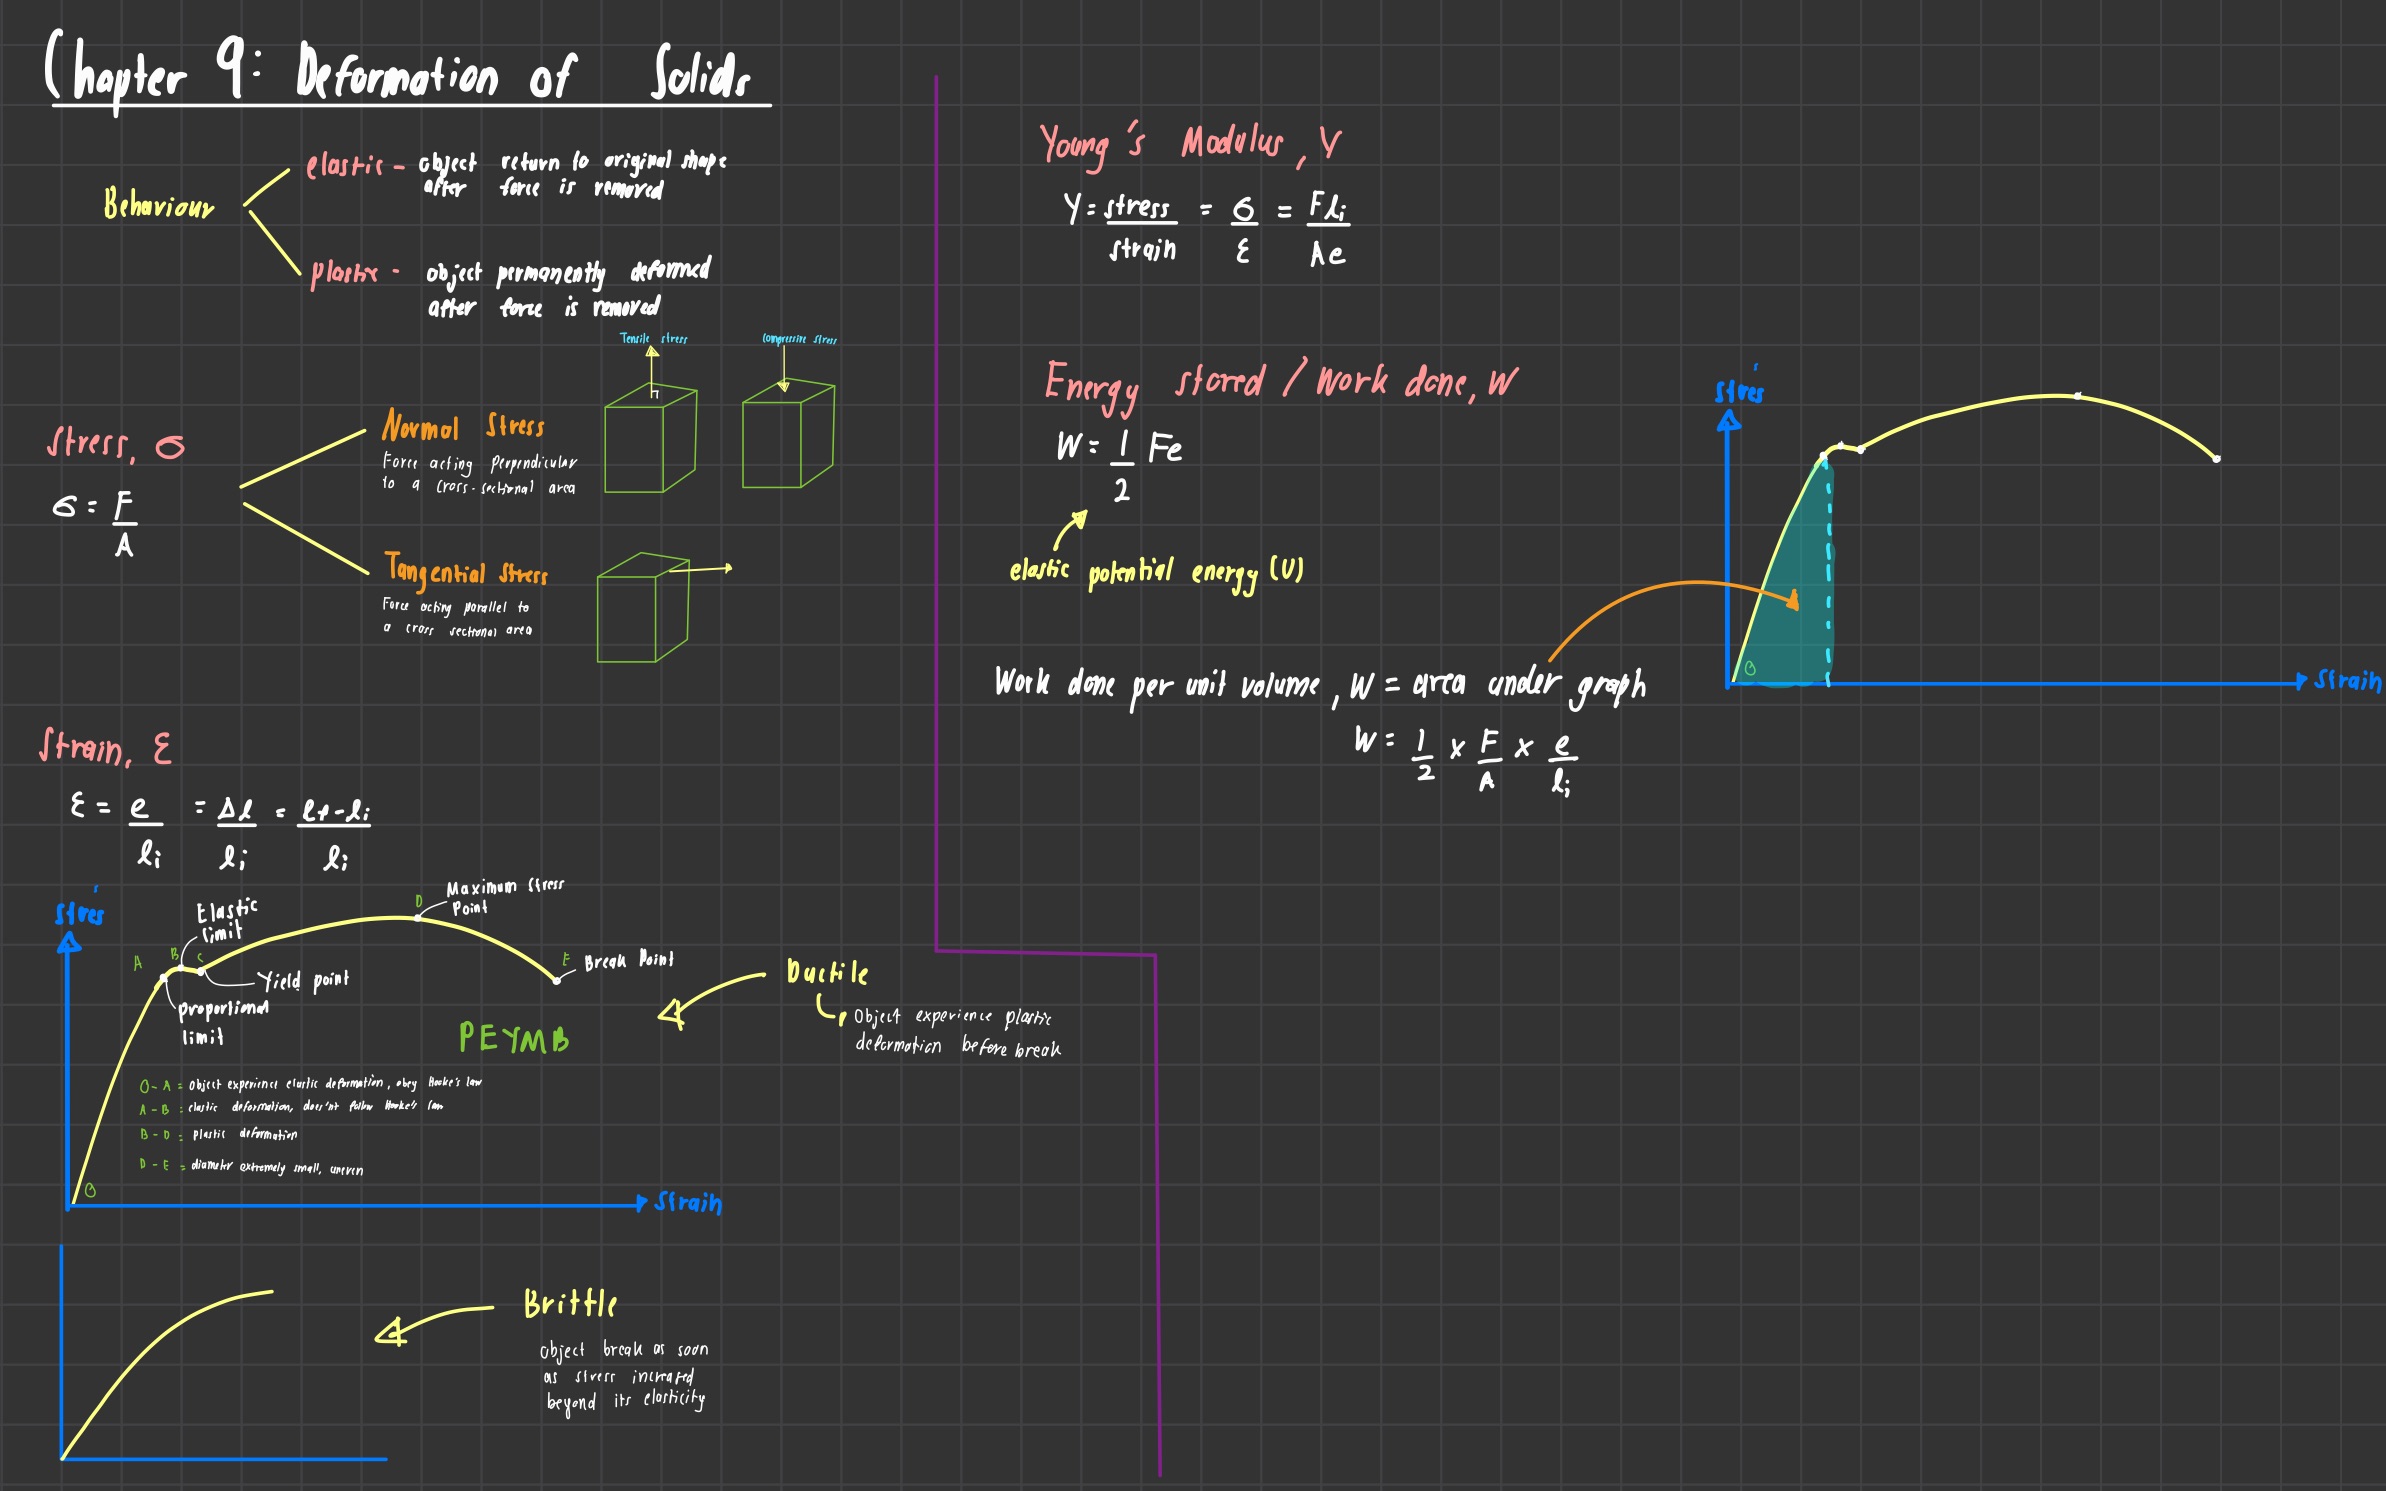 Chapter 9: Deformation of Solids
Behaviour
elastic - object return to original shape
after force is removed
plastic - object permanently deformed
after force is removed
Tensile stress
compressive stress
Stress, σ
σ = F/A
Normal Stress
Force acting perpendicular
to a cross-sectional area
Tangential Stress
Force acting parallel to
a cross sectional area
Strain, ε
ε = e/li = Δl/li = lf-li/li
stress
A
B
C
D
E
Elastic
limit
Maximum Stress
Point
Break Point
Yield point
proportional
limit
PEYMB
O-A = object experience elastic deformation, obey Hooke's law
A-B = elastic deformation, does'nt follow Hooke's law
B-D = plastic deformation
D-E = diameter extremely small, uneven
O
Strain
Ductile
Object experience plastic
deformation before break
Brittle
object break as soon
as stress increased
beyond its elasticity
Young's Modulus, Y
Y = stress/strain = σ/ε = Fli/Ae
Energy stored / Work done, W
W = 1/2 Fe
elastic potential energy (U)
Work done per unit volume, W = area under graph
W = 1/2 x F/A x e/li
stress
O
Strain